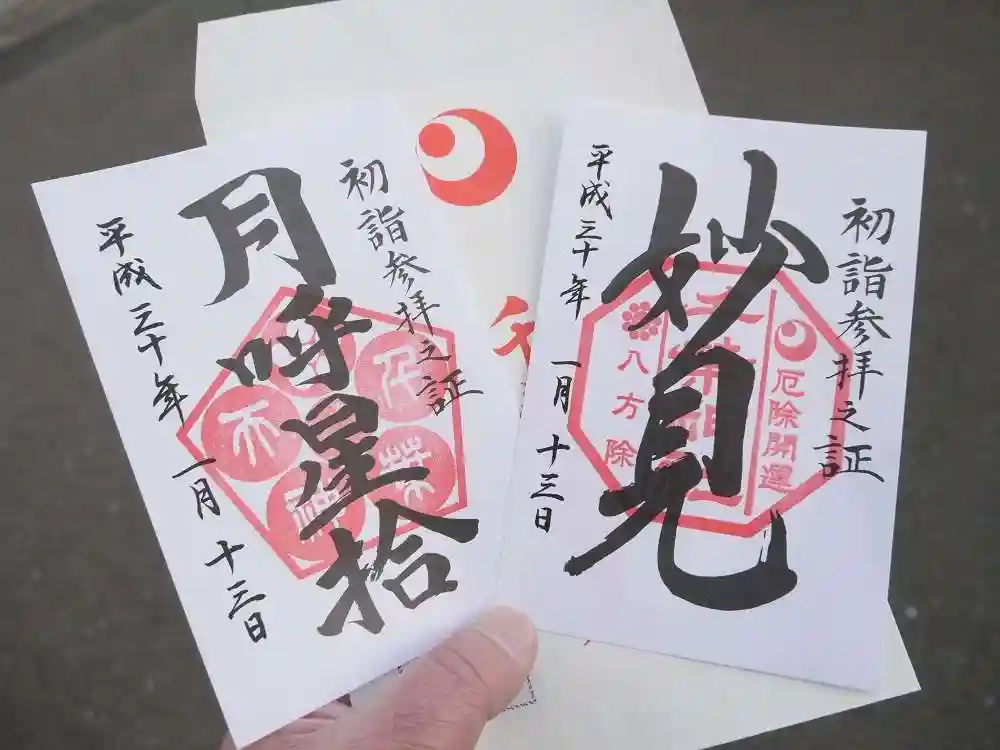 初詣参拝之証
月呼星拾
平成三十年 一月 十三日
千
初詣参拝之証
厄除開運
妙見
八方除
平成三十年 一月 十三日